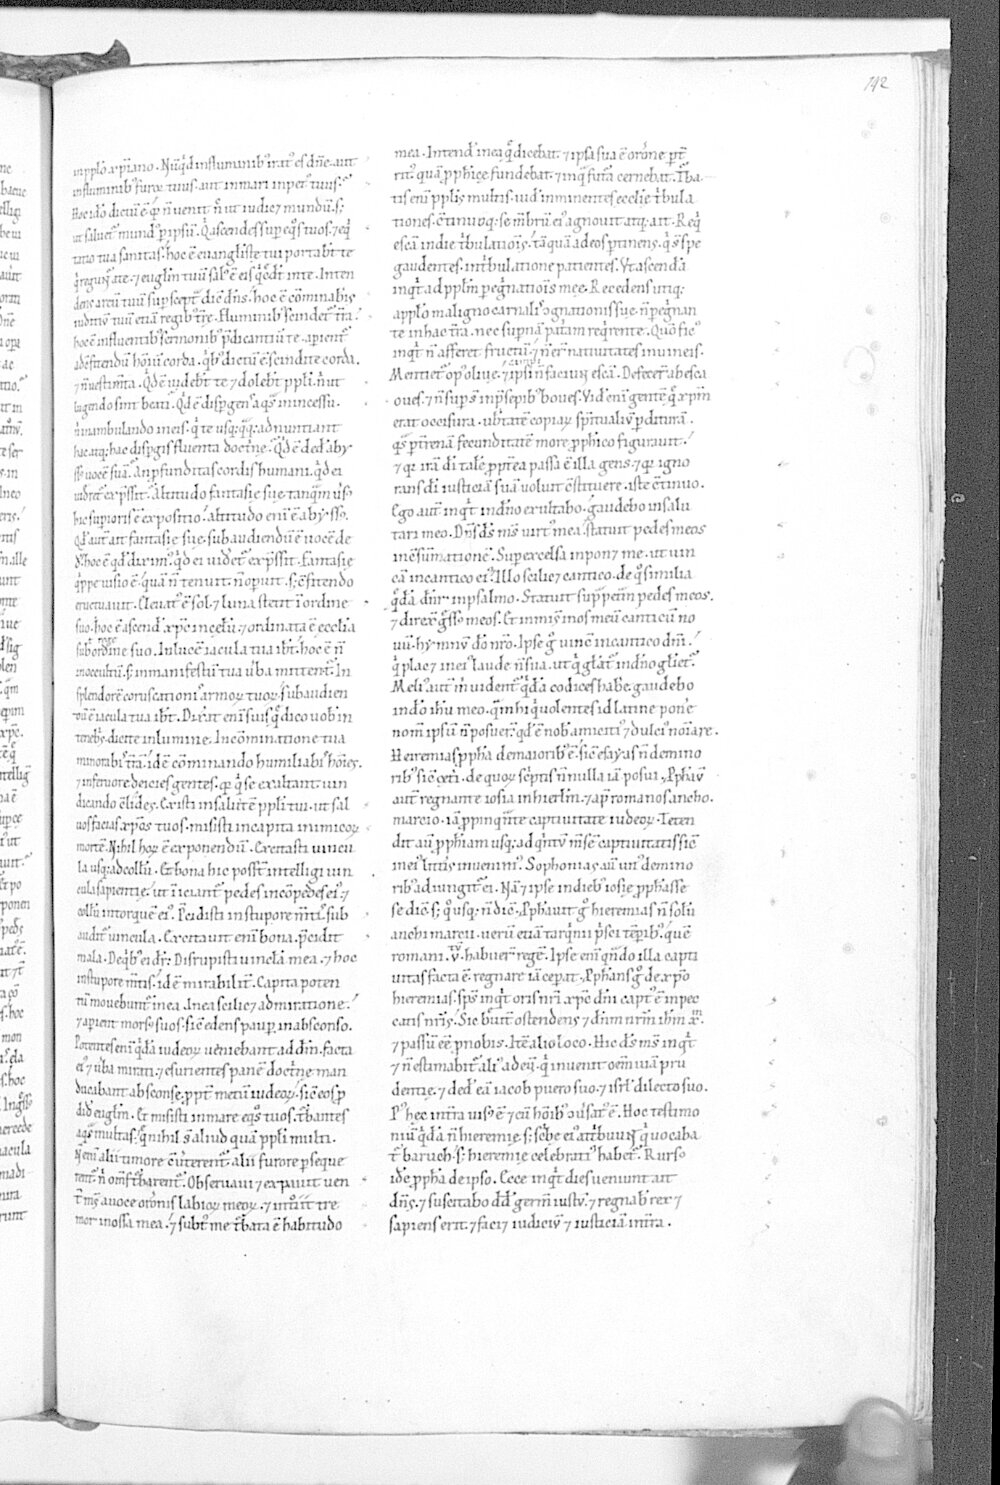 142
in pplō xp̄iano. Nūqd in fluminib' irat' es dn̄e. aut
in fluminib' furor tuus. aut in mari impet' tuus.
Hoc idō dictū ē. qr̄ n̄ uenit. n̄ ut iudic& mundū. s;
ut saluet' mund' p ipsū. Q ascendes sup eqs tuos. 7 eq
tatio tua sanitas. hoc ē euangliste tui portabt te
dens arcū tuū sup sceptr̄ dic̄ dn̄s. hoc ē cōminabis
iudiciū tuū etiā regib' tr̄e. Fluminib' scindet' tr̄a.
hoc ē influentib' sermonib' p̄dicantiū te. apient'
ad cfitendū hōiū corda. qb' dictū ē. scindite corda.
7 n̄ uestim̄ta. Qd ē uidebt te 7 dolebt ppli. n̄ ut
lugendo sint beati. Qd ē dispgens aqs in incessu.
n̄ in ambulando in eis. q te usq; q;q; adnuntiant
hac atq; hac dispgis fluenta doctrine. Qd ē ded' aby
ssus uocē suā. An pfunditas cordis humani. qd ei
uidet' expssit. Altitudo fantasie sue. tanqm uers'
hic supioris ē expositio. altitudo eni ē abyssus.
Qd aut ait fantasie sue. subaudiendū ē uocē de
d'. hoc ē qd diximꝰ. qd ei uidet' expssit. Fantasie
qppe uisio ē. quā n̄ tenuit. n̄ opuit. s; cfitendo
eructuauit. Eleuat' ē sol. 7 luna stetit ī ordine
suo. hoc ē ascend' xp̄c in celū. 7 ordinata ē ecclia
sub ordine suo. In luce iacula tua ibt. hoc ē n̄
in occultū. s; in manifestū tua uba mittent'. In
splendorē coruscationū armoꝝ tuoꝝ. subaudien
dū ē iacula tua ibt. Dixit eni suis. q dico uob in
tenebs. dicite in lumine. In cōminatione tua
minorabis trā. id ē cōminando humiliabis hōies.
7 in furore deicies gentes. qr̄ q se exaltant uin
dicando elides. Existi in salutē ppli tui. ut sal
uos facias xpos tuos. misisti in capita inimicoꝝ
mortē. Nihil hoꝝ ē exponendū. Excitasti uincu
la usq; ad collū. Et bona hic possunt intelligi uin
cula sapientie. ut iniciant' pedes in cōpedes ei'. 7
collū in torquē ei'. Pcidisti in stupore m̄tis. sub
audit' uincula. Excitauit eni bona. pcidit
mala. De qb' ei dr̄. Disrupisti uincla mea. 7 hoc
in stupore m̄tis. id ē mirabilit'. Capita poten
tū mouebunt' in ea. In ea scilic& admiratione.
7 apient morsus suos. sic edens paup in absconso.
Potentes eni qdā iudeoꝝ ueniebant ad dn̄m. facta
ei' 7 uba mirati. 7 esurientes panē doctrine. man
ducabant absconse. ppt' metū iudeoꝝ. sic eos p
did' eugliu. Et misisti in mare eqs tuos. tbantes
aqs multas. q nihil s̄ aliud quā ppli multi.
N̄ eni alii timore cūterent'. alii furore pseque
rent'. n̄ om̄s tbarent'. Obseruaui 7 expauit uen
t' m̄s a uoce orōnis labioꝝ meoꝝ. 7 introiit tre
mor in ossa mea. 7 subt' me tbata ē habitudo
mea. Intend' in ea q dicebat. 7 ipsa sua ē orōne pt'
rit'. quā pphice fundebat. 7 in q futa cernebat. Tba
tis eni pplis multis. uid' imminentes ecclie tbula
tiones. Ctinuoq; se m̄brū ei' agnouit atq; ait. Req
escā in die tbulatiois. tāquā ad eos ptinens. qs spe
gaudentes. in tbulatione patientes. Vt ascendā
inqt ad pplm pegnatiois mee. Recedens utiq;
a pplo maligno carnalis cognationis sue. n̄ pegnan
te in hac tra. nec supnā patam requirente. Quo fic'
inqt n̄ afferet fructū. 7 n̄ er̄ natiuitates in uineis.
Mentiet' op' oliue. 7 cāpi n̄ faciens escā. Defecer' ab esca
oues. 7 n̄ supst' in psepib' boues. Vid' eni gente q xpm
erat occisura. ubtate copiaꝝ spitualiū pditurā.
qs p trenā fecunditate more pphico figurauit.
7 qr̄ irā di tale pptea passa ē illa gens. 7 qr̄ igno
rans di iusticiā suā uoluit cstituere. iste ctinuo.
Ego aut inqt in dn̄o exultabo. gaudebo in salu
tari meo. Dn̄s ds m̄s uirt' mea. statuit pedes meos
in csūmatione. Sup excelsa inpon& me. ut uin
cā in cantico ei'. Illo scilic& cantico. de q similia
qdā dn̄r in psalmo. Statuit sup petrā pedes meos.
7 direx' gssus meos. Et inmisit in os meū canticū no
uū. hymnū do nr̄o. Ipse g' uinc̄ in cantico dn̄i.
q plac& in ei' laude. n̄ sua. ut q glat'. in dn̄o gliet'.
Meli' aut' m uident' qdā codices habe. gaudebo
in do ihu meo. qm hi q uolentes id latine pone
nom̄ ipsū n̄ posuer'. qd' ē nob amiciti' 7 dulci' noīare.
Hieremias ppha de maiorib' ē. sic esayas. n̄ de mino
rib'. sic cet'i. de quoꝝ sc'ptis n̄nulla iā posui. Pphau'
aut' regnante iosia in hierlm. 7 ap romanos anco
marcio. iā ppinquante captiuitate iudeoꝝ. Teten
dit aū pphiam usq; ad quintū m̄se captiuitatis sic
in ei' littis inuenim'. Sophonias aū un' de mino
rib' adiungit' ei. Nā 7 ipse in dieb' iosie pphasse
se dic'. s; qusq; n̄ dic'. Pphauit g' hieremias n̄ solū
anchi marcii. uerū etiā tarqnii psci tempib'. quē
romani .V. habuer' rege. Ipse eni qndo illa capti
uitas facta ē. regnare iā cepat. Pphans g' de xpo
hieremias. sps inqt oris nr̄i xpc dn̄s capt' ē in pec
catis nr̄is. Sic breuit' ostendens 7 dn̄m nr̄m ihm xm
7 passū cē p nobis. Itē alio loco. Hic ds m̄s inqt
7 n̄ estimabit' ali' ad eū. q inuenit oēm uiā pru
dentie. 7 ded' eā iacob puero suo. 7 isrl' dilecto suo.
P' hec in tra uis' ē. 7 cū hōib' cuersat' ē. Hoc testimo
niū qdā n̄ hieremie. s; scbe ei' attbuunt q uocaba
t' baruch. s; hieremie celebrati' habet'. Rurso
idē ppha de ipso. Ecce inqt dies ueniunt ait
dn̄s. 7 suscitabo dd germ̄ iustū. 7 regnab' rex 7
sapiens erit. 7 faci& iudiciū 7 iusticiā in tra.